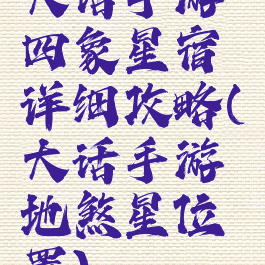 大话手游
四象星宿
详细攻略(
大话手游
地煞星位
置)